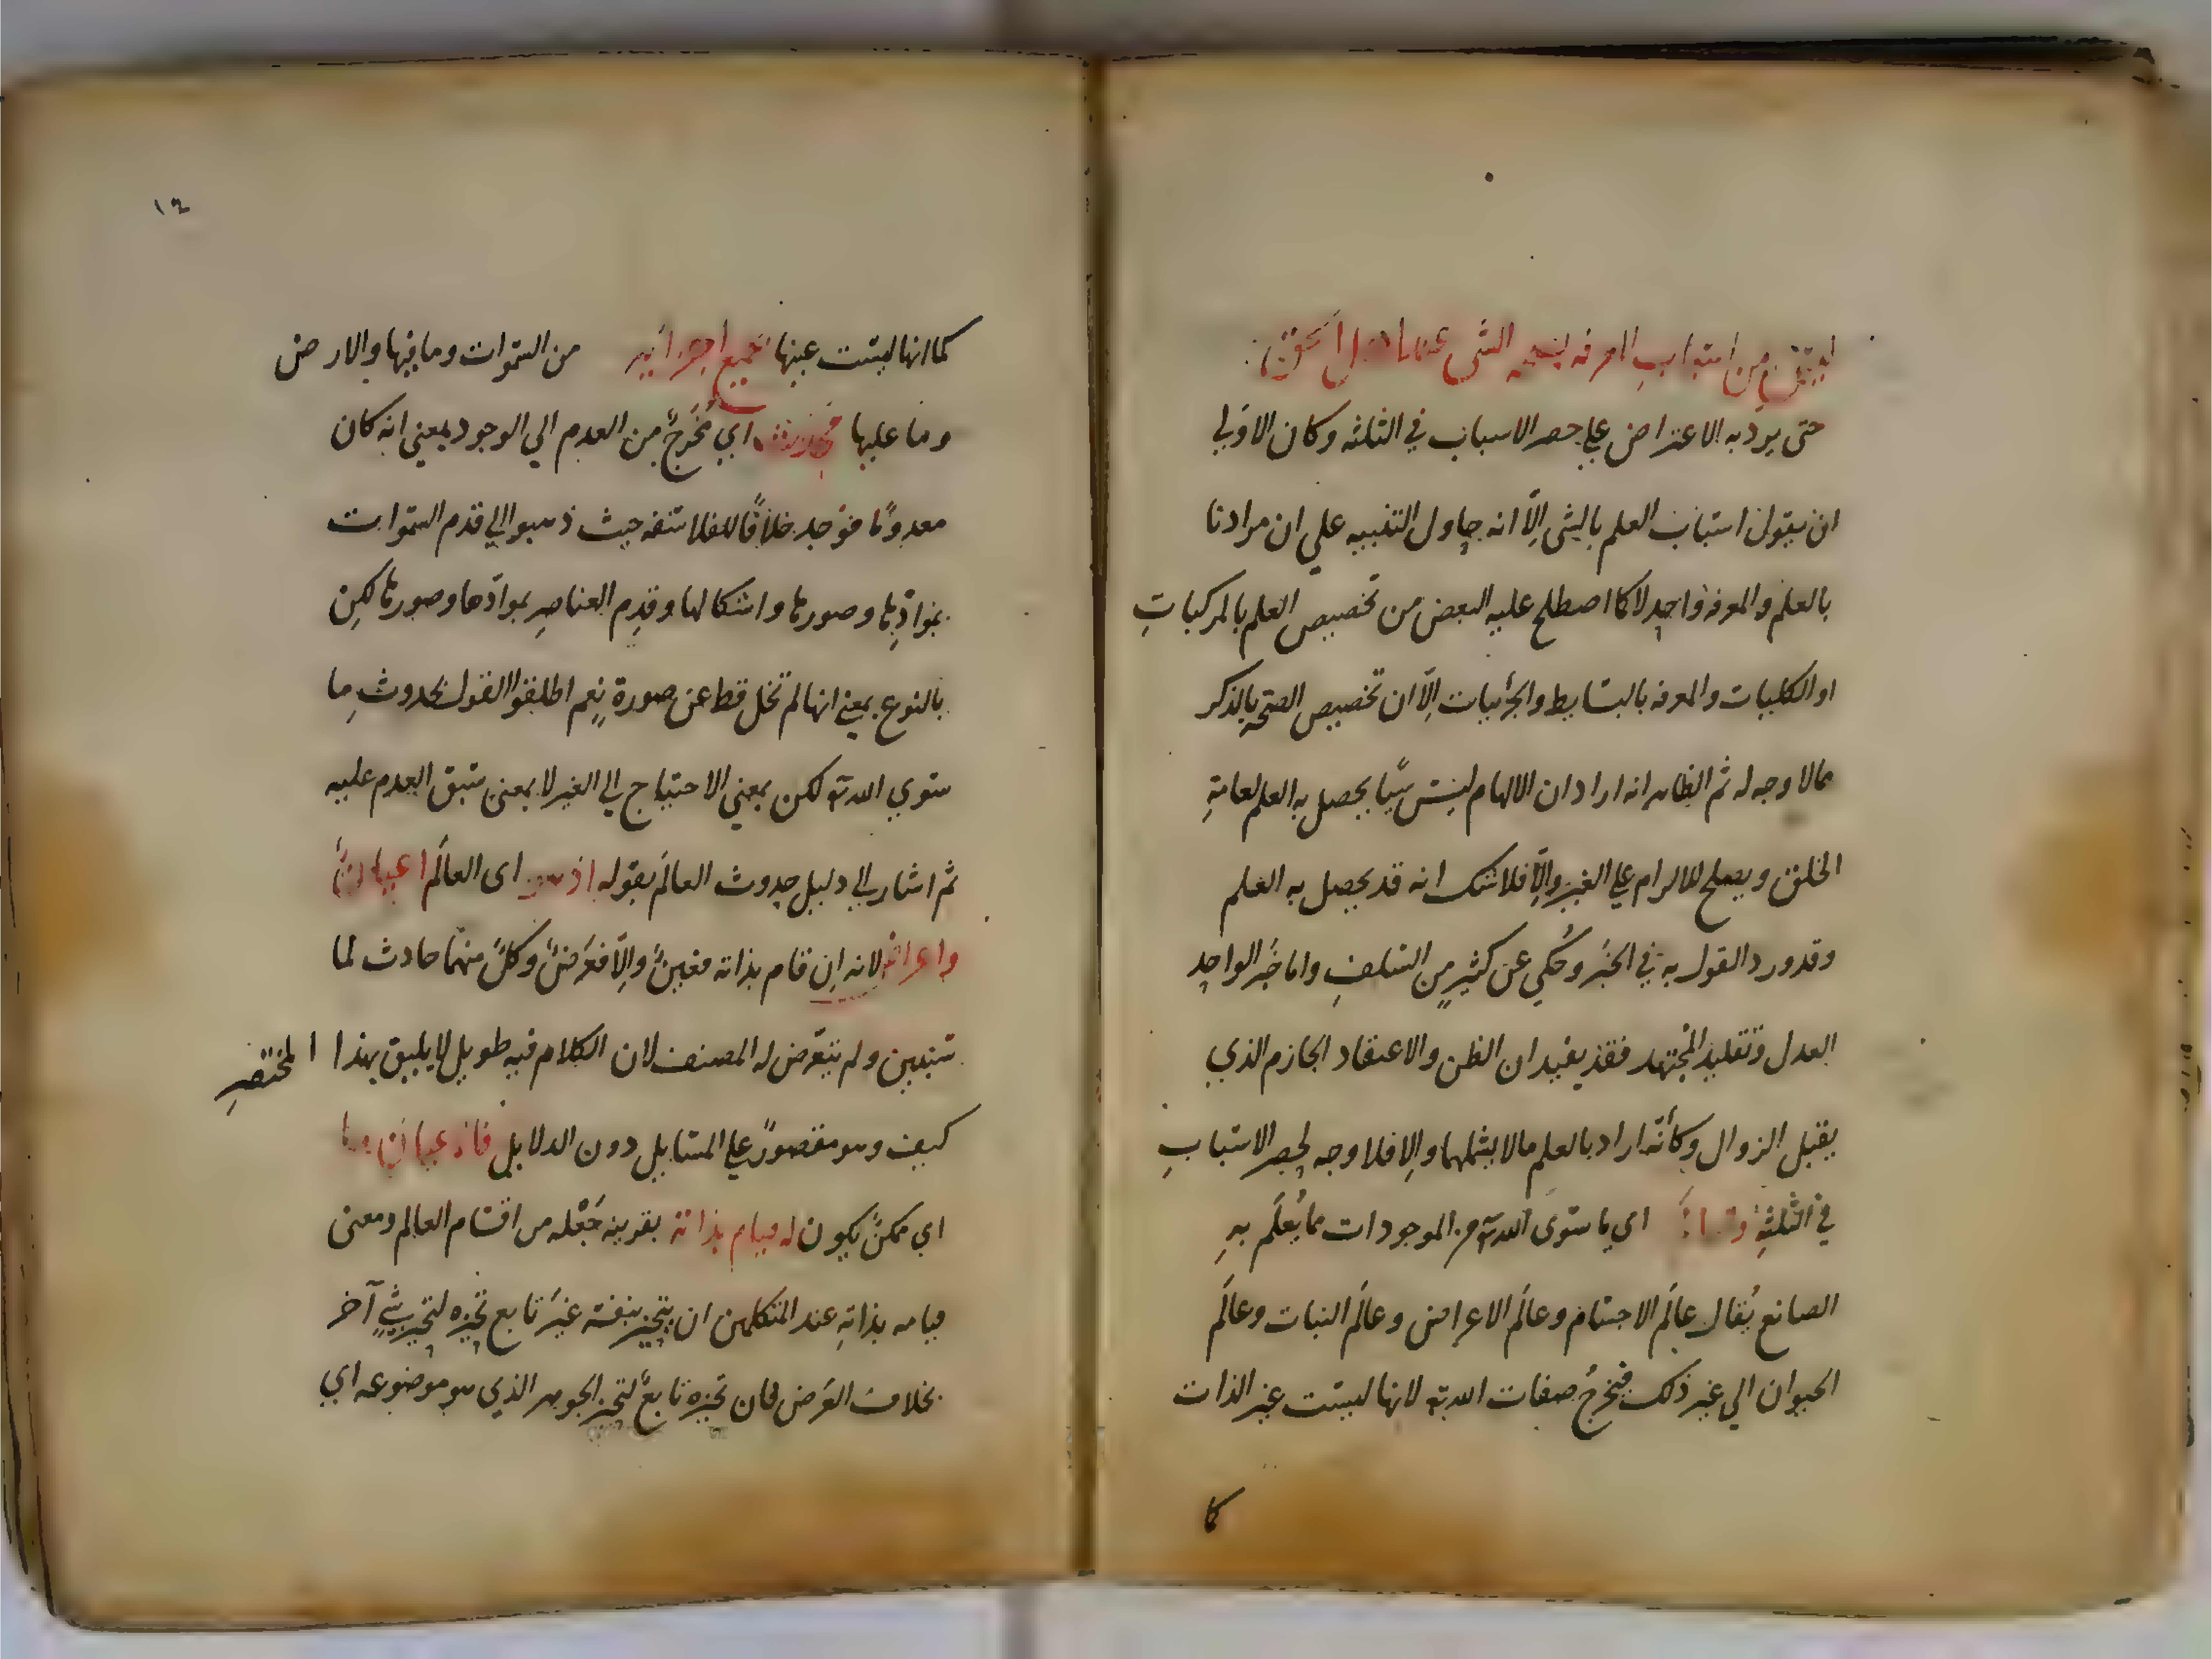 ليس من اسباب المعرفه بصحه الشئ عند اهل الحق
حتى يرد به الاعتراض علي حصر الاسباب في الثلثه وكان الاولي
ان يقول اسباب العلم بالشئ الّا انه حاول التنبيه علي ان مرادنا
بالعلم والمعرفه واحد لا كما اصطلح عليه البعض من تخصيص العلم بالمركبات
او الكليات والمعرفه بالبسايط والجزئيات الّا ان تخصيص الصحه بالذكر
مما لا وجه له ثم الظاهر انه اراد ان الالهام ليس سببًا يحصل به العلم لعامة
الخلق ويصلح للالزام علي الغير والّا فلا شك انه قد يحصل به العلم
وقد ورد القول به في الخبر وحُكي عن كثيرٍ من السلف واما خبر الواحد
العدل وتقليد المجتهد فقد يفيدان الظن والاعتقاد الجازم الذي
يقبل الزوال وكأنّه اراد بالعلم ما لا يشملهما والا فلا وجه لحصر الاسبابِ
في الثلثةِ والعالَم اي ما سوى الله تع من الموجودات مما يُعلَم بهِ
الصانع يُقال عالَم الاجسام وعالَم الاعراض وعالَم النبات وعالَم
الحيوان الي غير ذلك فيخرجُ صفات الله تع لانها ليست غير الذات
كما
١٢
كما انها ليست عينها بجميع اجزائه من السموات وما فيها والارض
وما عليها محدث اي مُخرَجٌ من العدم الي الوجود بمعني انه كان
معدومًا فوجد خلافًا للفلاسفه حيث ذهبوا الي قدم السموات
بموادِّها وصورها واشكالها وقِدم العناصر بموادّها وصورها لكن
بالنوع بمعني انها لم تخل قط عن صورةٍ نعم اطلقوا القول بحدوث ما
سوي الله تع لكن بمعني الاحتياج الي الغير لا بمعنى سبق العدم عليه
ثم اشار الي دليل حدوث العالَم بقوله اذ هو اى العالَم اعيانٌ
واعراض لانه ان قام بذاته فعينٌ والّا فعرضٌ وكلٌ منهما حادث لما
سنبين ولم يتعرّض له المصنف لان الكلام فيه طويل لا يليق بهذا المختصرِ
كيف وهو مقصورٌ علي المسايل دون الدلايل فالاعيان ما
اي ممكنٌ يكون له قيام بذاته بقرينه جَعْله من اقسام العالم ومعنى
قيامه بذاتهِ عند المتكلمين ان يتحيز بنفسه غيرَ تابع تحيّزه لتحيز شئٍ آخر
بخلاف العَرَض فان تحيّزه تابعٌ لتحيز الجوهر الذي هو موضوعه اي